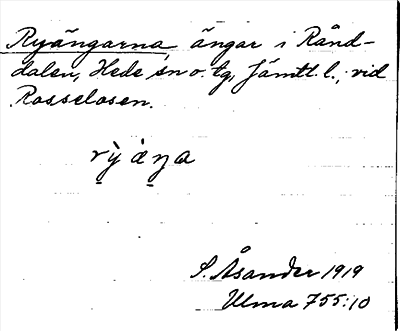 Ryängarna, ängar i Rånd-
dalen, Hede sn o. tg, Jämtl. l., vid
Rosselosen.
rỳ àŋa
S. Åsander 1919
Ulma 755:10